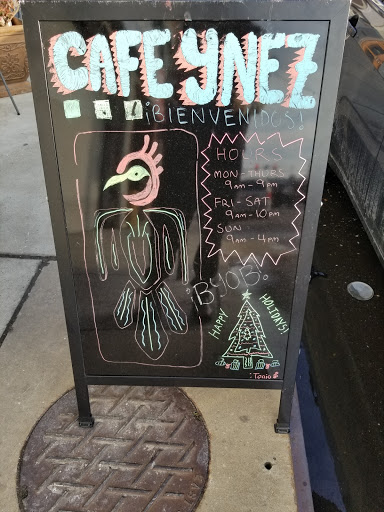 CAFE YNEZ
¡BIENVENIDOS!
HOURS
MON-THURS
9AM-9PM
FRI-SAT
9AM-10PM
SUN
9AM-4PM
¡BYOB!
HAPPY HOLIDAYS!